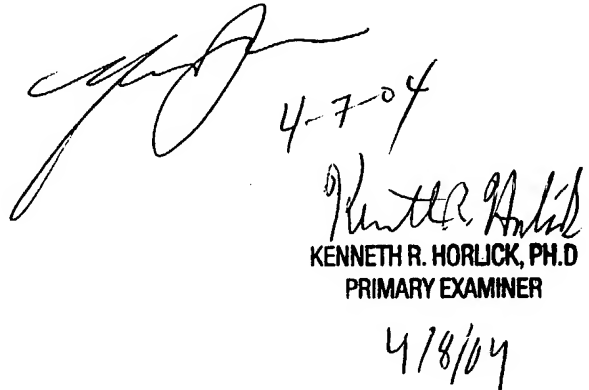 4-7-04
Kenneth R. Horlick
KENNETH R. HORLICK, PH.D
PRIMARY EXAMINER
4/8/04